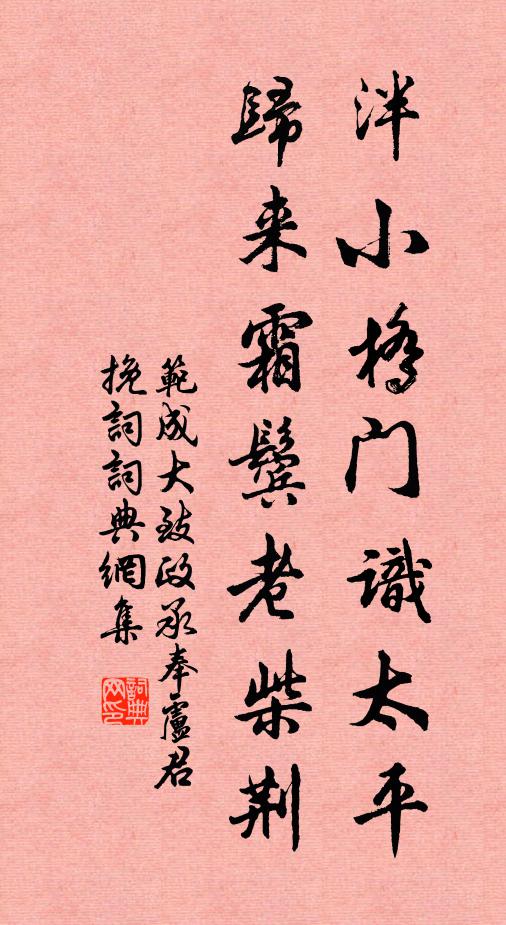 泮小橋门識太平
歸来霜鬓老柴荆
範成大致政承奉盧君
挽詞詞典網集
詞典网印